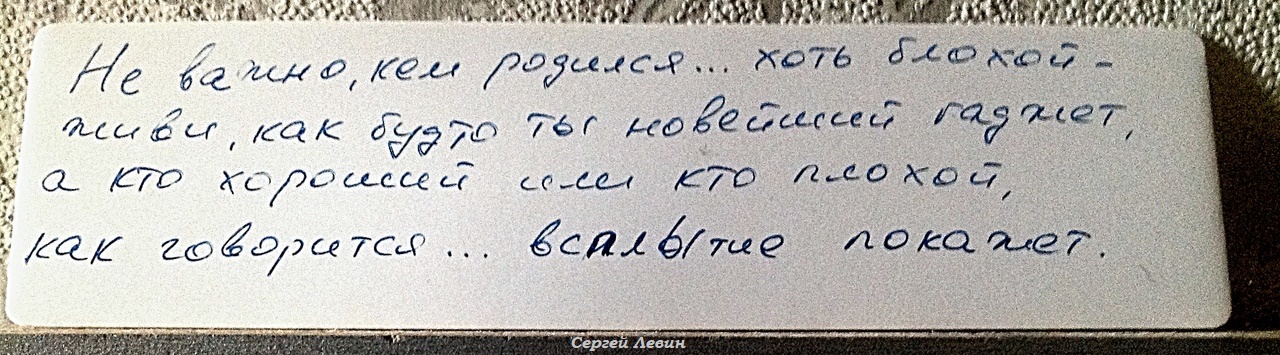 Не важно, кем родился... хоть блохой -
живи, как будто ты новейший гаджет,
а кто хороший или кто плохой,
как говорится... всплытие покажет.
Сергей Левин